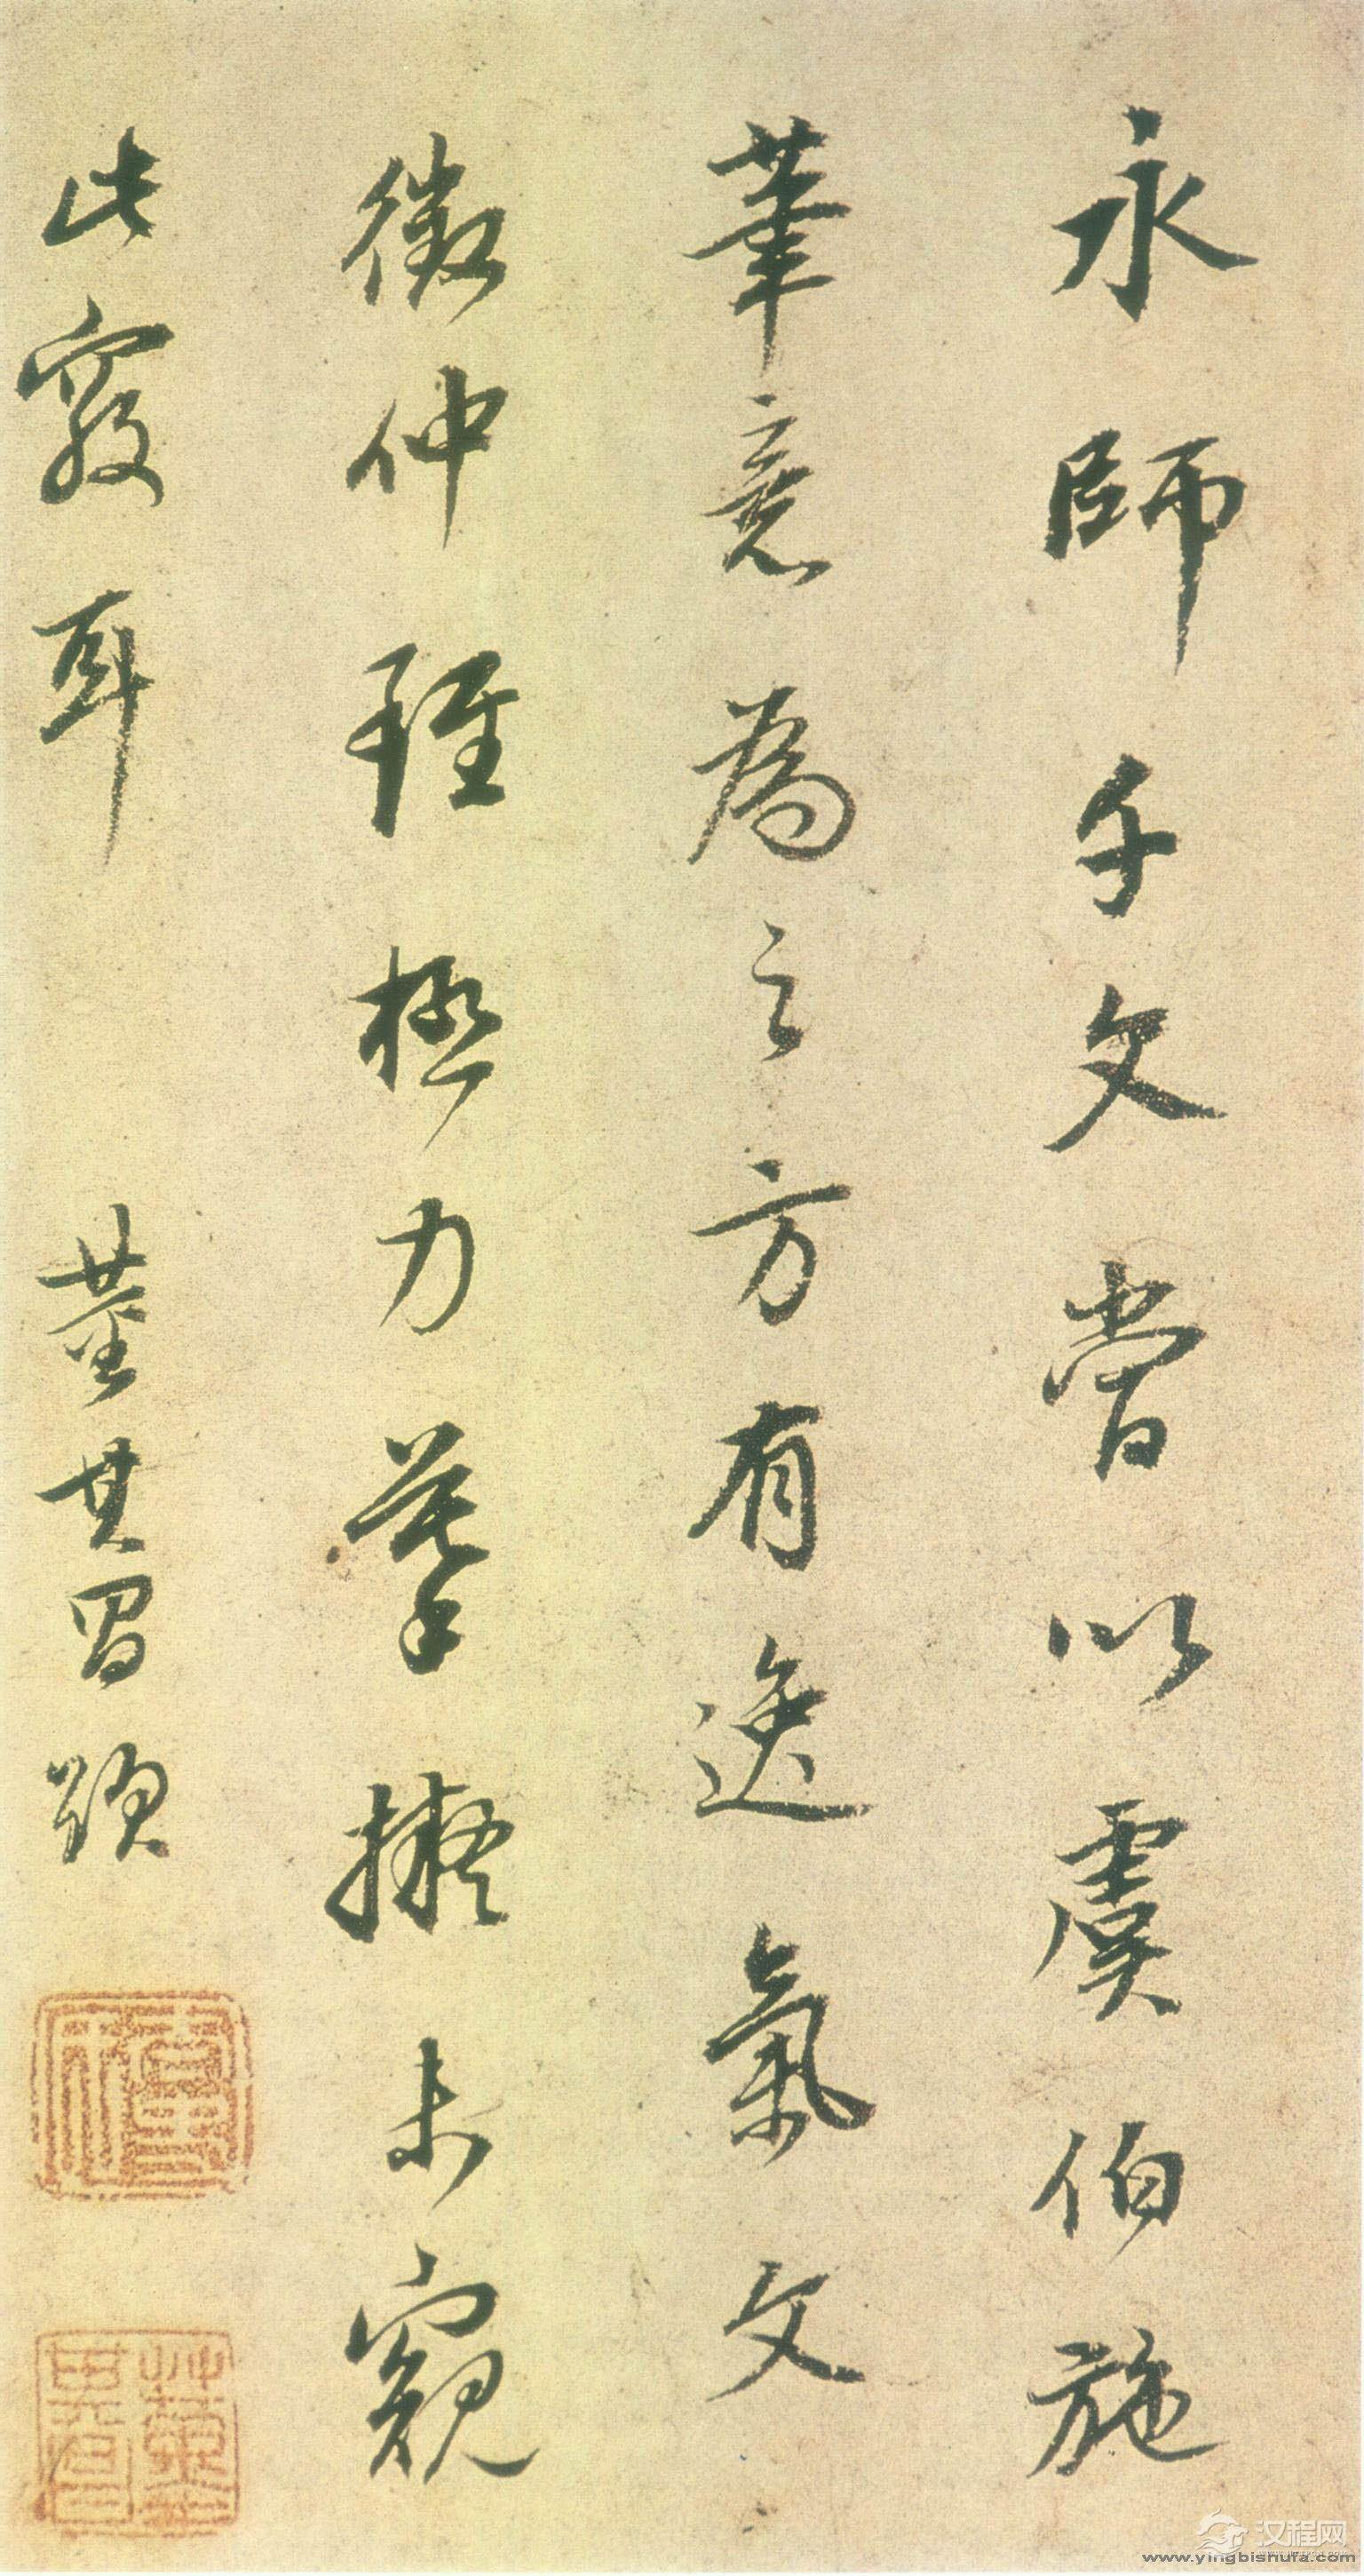 永師千文嘗以虞伯施
筆意為之方有逸氣文
徵仲雖極力摹擬未窺
此竅耳 董其昌題
董其昌
汉程网
www.yingbishufa.com